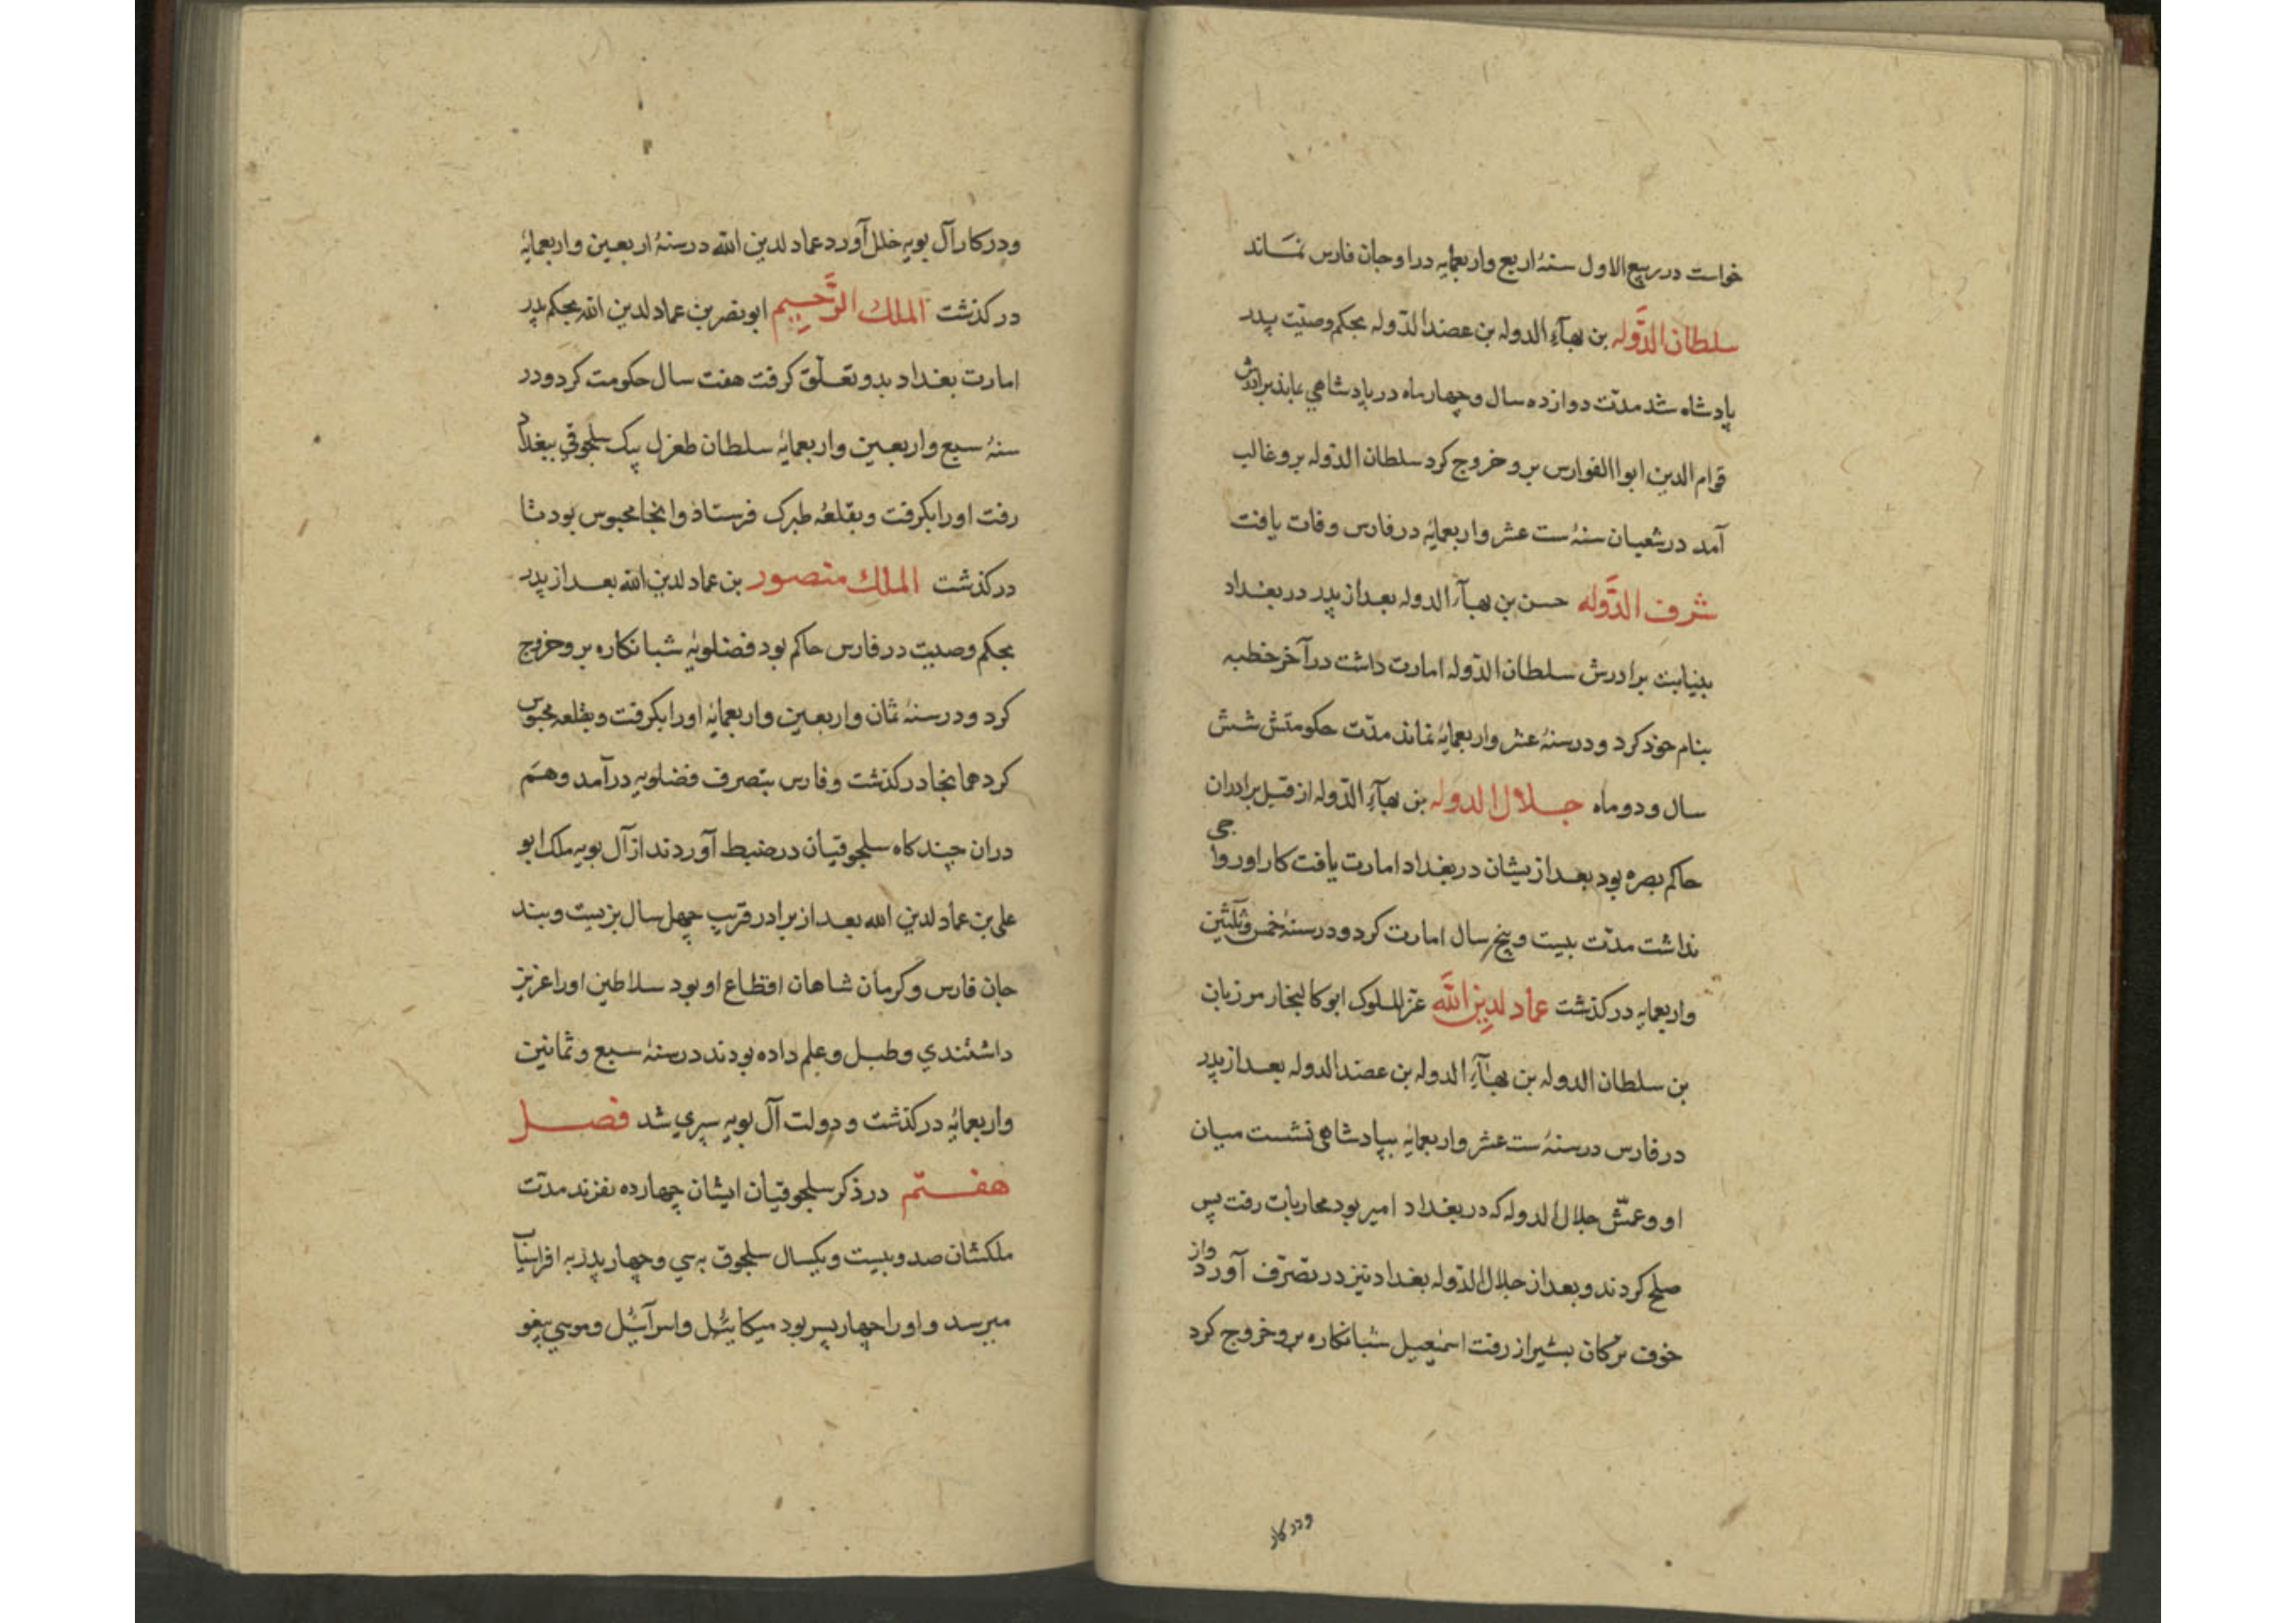 خواست در ربیع الاول سنهٔ اربع واربعمایه در اوجان فارس نمساند
سلطان الدَّوله بن بهآء الدوله بن عضد الدّوله بحکم وصیّت پدر
پادشاه شد مدّت دوازده سال وچهار ماه در پادشاهی بماند برادرش
قوام الدین ابوا الفوارس برو خروج کرد سلطان الدّوله برو غالب
آمد در شعبان سنهٔ ست عشر واربعمایهٔ در فارس وفات یافت
شرف الدَّوله حسن بن بهآء الدوله بعد از پدر در بغداد
بنیابت برادرش سلطان الدّوله امارت داشت در آخر خطبه
بنام خود کرد ودر سنهٔ عشر واربعمایهٔ نماند مدّت حکومتش شش
سال ودو ماه جلال الدوله بن بهآء الدّوله از قبل برادران
حاکم بصره بود بعد ازیشان در بغداد امارت یافت کار او رواجی
نداشت مدّت بیست وپنج سال امارت کرد ودر سنهٔ خمس وثلثین
واربعمایه درکذشت عماد لدین اللّه عزّ الملوک ابوکالیجار مرزبان
بن سلطان الدوله بن بهآء الدوله بن عضد الدوله بعد از پدر
در فارس در سنهٔ ست عشر واربعمایهٔ بپادشاهی نشست میان
او وعمّش جلال الدوله که در بغداد امیر بود محاربات رفت پس
صلح کردند وبعد از جلال الدّوله بغداد نیز در تصرّف آورد واز
خوف ترکان بشیراز رفت اسمعیل شبانکاره برو خروج کرد
ودر کار
ودر کار آل بویه خلل آورد عماد لدین اللّه در سنهٔ اربعین واربعمایهٔ
درکذشت الملك الرَّحیم ابو نصر بن عماد لدین اللّه بحکم پدر
امارت بغداد بدو تعلّق کرفت هفت سال حکومت کرد ودر
سنهٔ سبع واربعین واربعمایهٔ سلطان طغرل بیک سلجوقی ببغداد
رفت اورا بکرفت وبقلعهٔ طبرک فرستاذ وانجا محبوس بود تا
درکذشت الملك منصور بن عماد لدین اللّه بعد از پدر
بحکم وصیت در فارس حاکم بود فضلویهٔ شبانکاره برو خروج
کرد ودر سنهٔ ثمان واربعین واربعمایهٔ اورا بکرفت وبقلعه محبوس
کرد همانجا درکذشت وفارس بتصرف فضلویه درآمد وهم
دران چندکاه سلجوقیان در ضبط آوردند از آل بویه ملک ابو
علی بن عماد لدین اللّه بعد از برادر قریب چهل سال بزیست وبند
جان فارس وکرمان شاهان اقطاع او بود سلاطین اورا عزیز
داشتندی وطبل وعلم داده بودند در سنهٔ سبع وثمانین
واربعمایهٔ درکذشت ودولت آل بویه سپری شد فصل
هفتم در ذکر سلجوقیان ایشان چهارده نفرند مدّت
ملکشان صد وبیست ویکسال سلجوق به سی وچهار پدر به افراسیاب
میرسد واورا چهار پسر بود میکائیل واسرآئیل وموسی بیغو